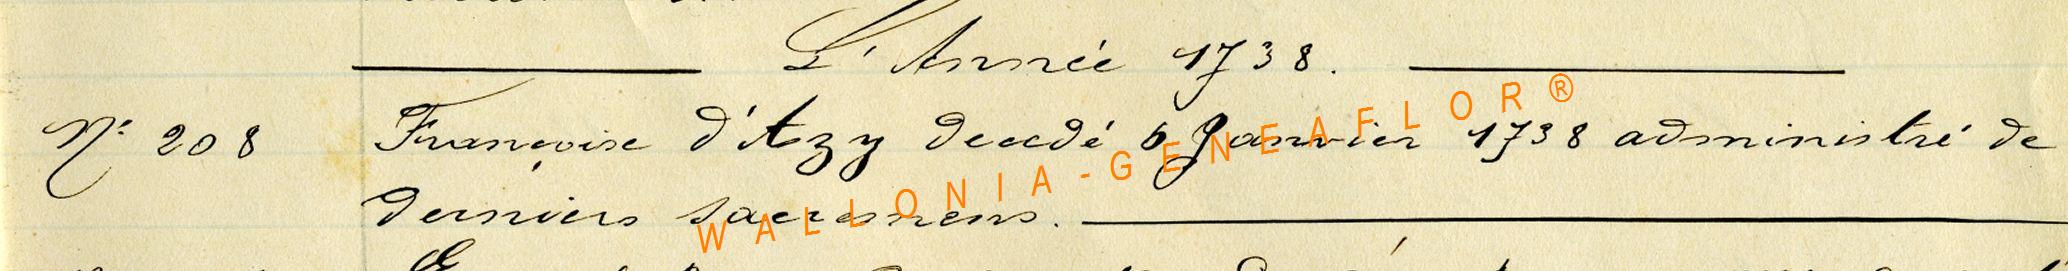 L'Année 1738.
N° 208 Françoise d'Azy decedé 6 Janvier 1738 administré de
derniers sacremens.
WALLONIA-GENEAFLOR®